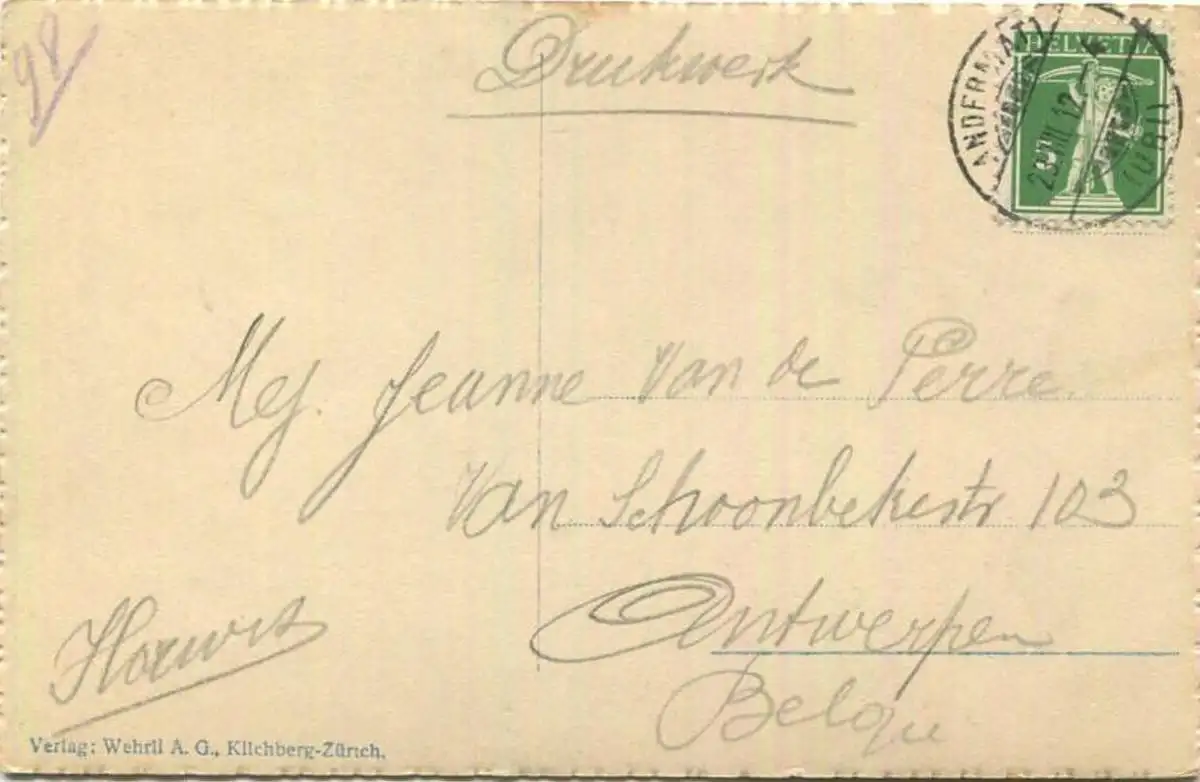 98
Drukwerk
HELVETIA
ANDERMATT
(URI)
Mej. Jeanne Van de Perre.
Van Schoonbekestr 103
Antwerpen
Belqu
Verlag: Wehrli A. G., Kilchberg-Zürich.